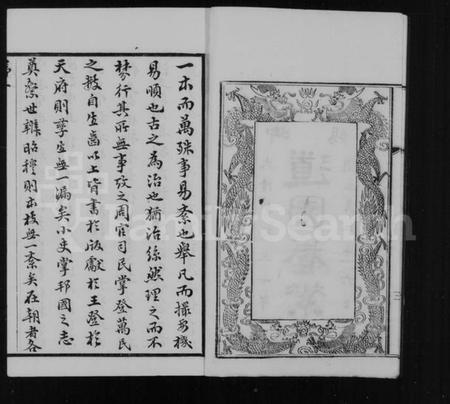 一本而萬殊事易紊也舉凡而撮其機
易順也古之為治也猶治絲然理之而不
棼行其所無事攷之周官司民掌登萬民
之數自生齒以上皆書於版獻於王登於
天府則孳生無一漏矣小史掌邦國之志
奠繫世辨昭穆則本枝無一紊矣在朝者各
FamilySearch